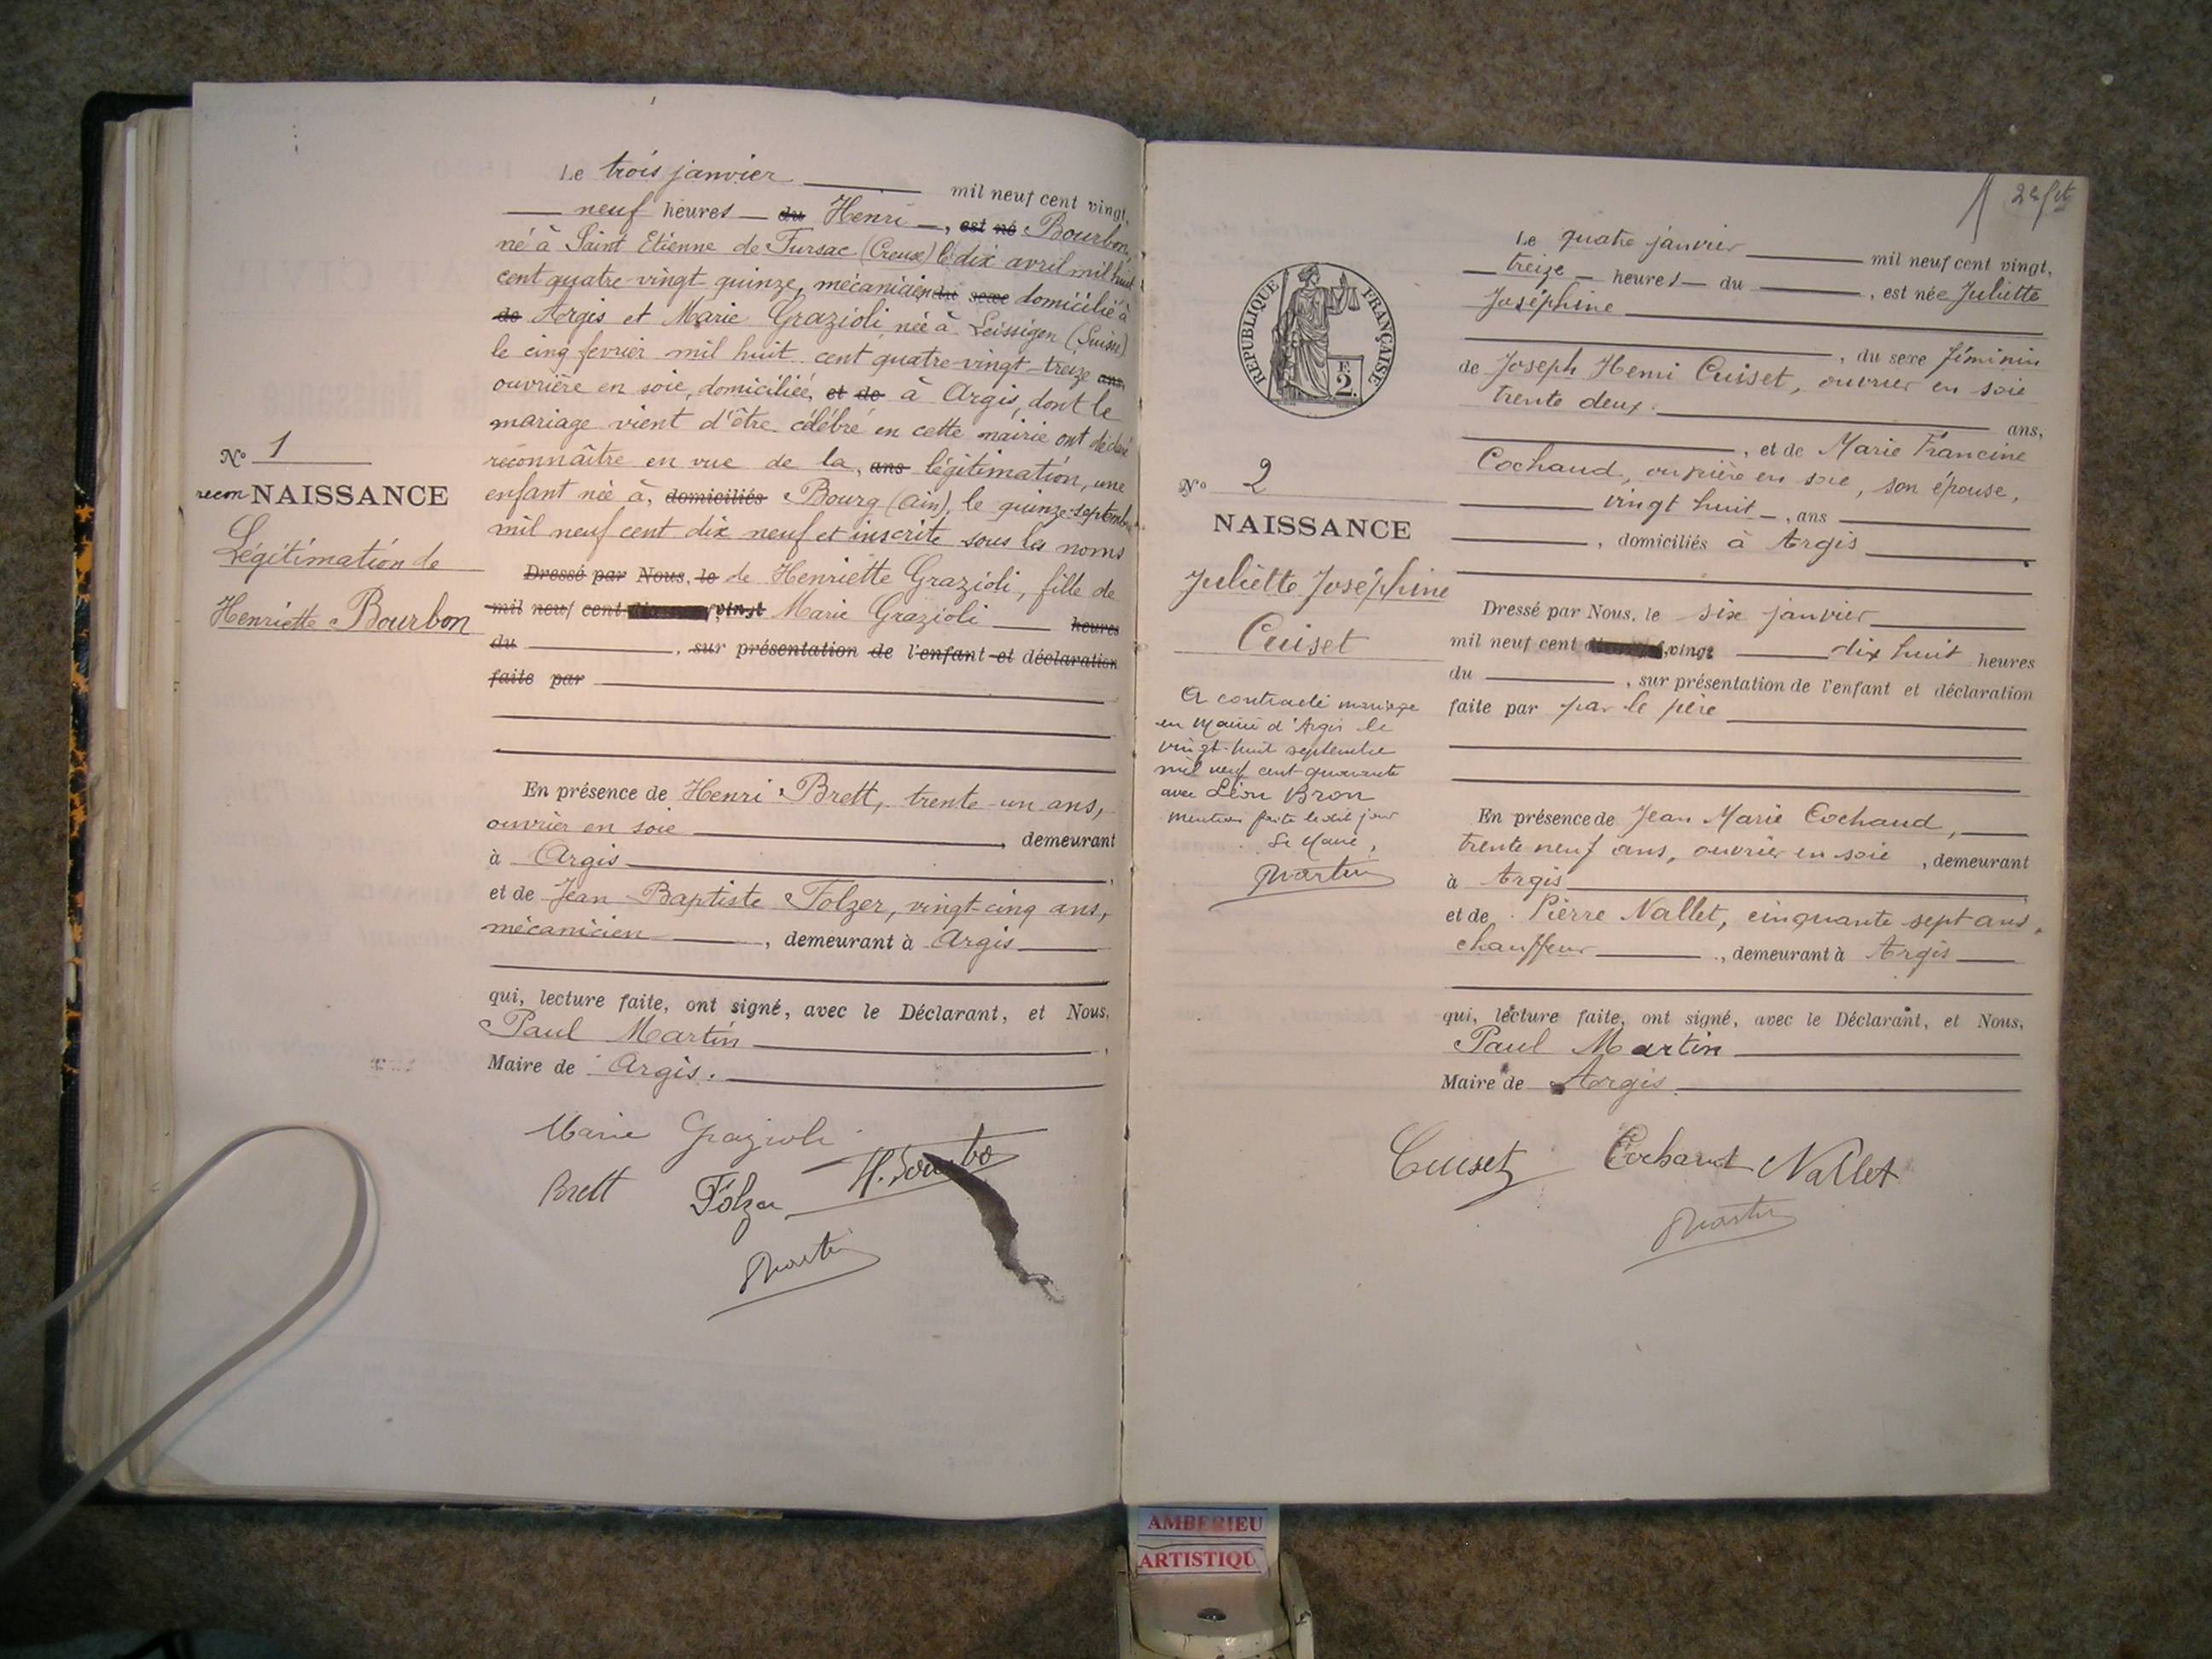 Le trois janvier mil neuf cent vingt,
neuf heures du Henri, est né Bourbon,
né à Saint Etienne de Fursac (Creuse) le dix avril mil huit
cent quatre-vingt quinze, mécanicien du sexe domicilié à
de Argis et Marie Grazioli née à Leissigen (Suisse)
le cinq fevrier mil huit cent quatre-vingt-treize ans,
ouvrière en soie, domiciliée, et de à Argis, dont le
mariage vient d'être célébré en cette mairie ont déclaré
reconnaître en vue de la, ans légitimation, une
enfant née à, domiciliés Bourg (Ain), le quinze septembre
mil neuf cent dix neuf et inscrite sous les noms
Dressé par Nous, le de Henriette Grazioli, fille de
mil neuf cent vingt Marie Grazioli heures
du , sur présentation de l'enfant et déclaration
faite par
En présence de Henri Brett, trente-un ans,
ouvrier en soie , demeurant
à Argis
et de Jean Baptiste Folzer, vingt-cinq ans,
mécanicien , demeurant à Argis
qui, lecture faite, ont signé, avec le Déclarant, et Nous,
Paul Martin
Maire de Argis.
Marie Grazioli
Brett Folzer
Martin
N° 1
recon NAISSANCE
Légitimation de
Henriette Bourbon
RÉPUBLIQUE FRANÇAISE
F.
2.
N° 2
NAISSANCE
Juliette Joséphine
Cuiset
A contracté mariage
en Mairie d'Argis le
vingt-huit septembre
mil neuf cent quarante
avec Léon Bron
Mention faite le dit jour
Le Maire,
Martin
Le quatre janvier mil neuf cent vingt,
treize heures du , est née Juliette
Joséphine
, du sexe féminin
de Joseph Henri Cuiset, ouvrier en soie
trente deux ans,
, et de Marie Francine
Cochaud, ouvrière en soie, son épouse,
vingt huit, ans
, domiciliés à Argis
Dressé par Nous, le six janvier
mil neuf cent vingt dix huit heures
du , sur présentation de l'enfant et déclaration
faite par par le père
En présence de Jean Marie Cochaud,
trente neuf ans, ouvrier en soie , demeurant
à Argis
et de Pierre Nallet, cinquante sept ans,
chauffeur , demeurant à Argis
qui, lecture faite, ont signé, avec le Déclarant, et Nous,
Paul Martin
Maire de Argis
Cuiset Cochaud Nallet
Martin
AMBERIEU
ARTISTIQU